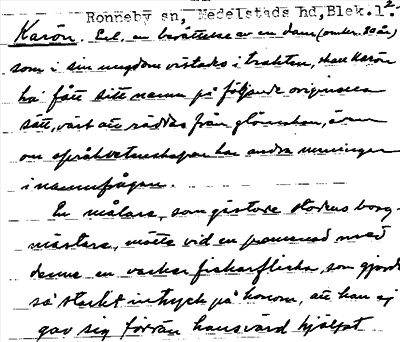 Ronneby sn, Medelstads hd, Blek. l. 2.
Karön. Enl. en berättelse av en dam (omkr. 80 år)
som i sin ungdom vistats i trakten, skall Karön
ha fått sitt namn på följande originella
sätt, värt att räddas från glömskan, även
om språkvetenskapen har andra meningar
i namnfrågan.
En målare, som gästade stadens borg-
mästare, mötte vid en promenad med
denne en vacker fiskarflicka, som gjorde
så starkt intryck på honom, att han ej
gav sig förrän hans värd hjälpt